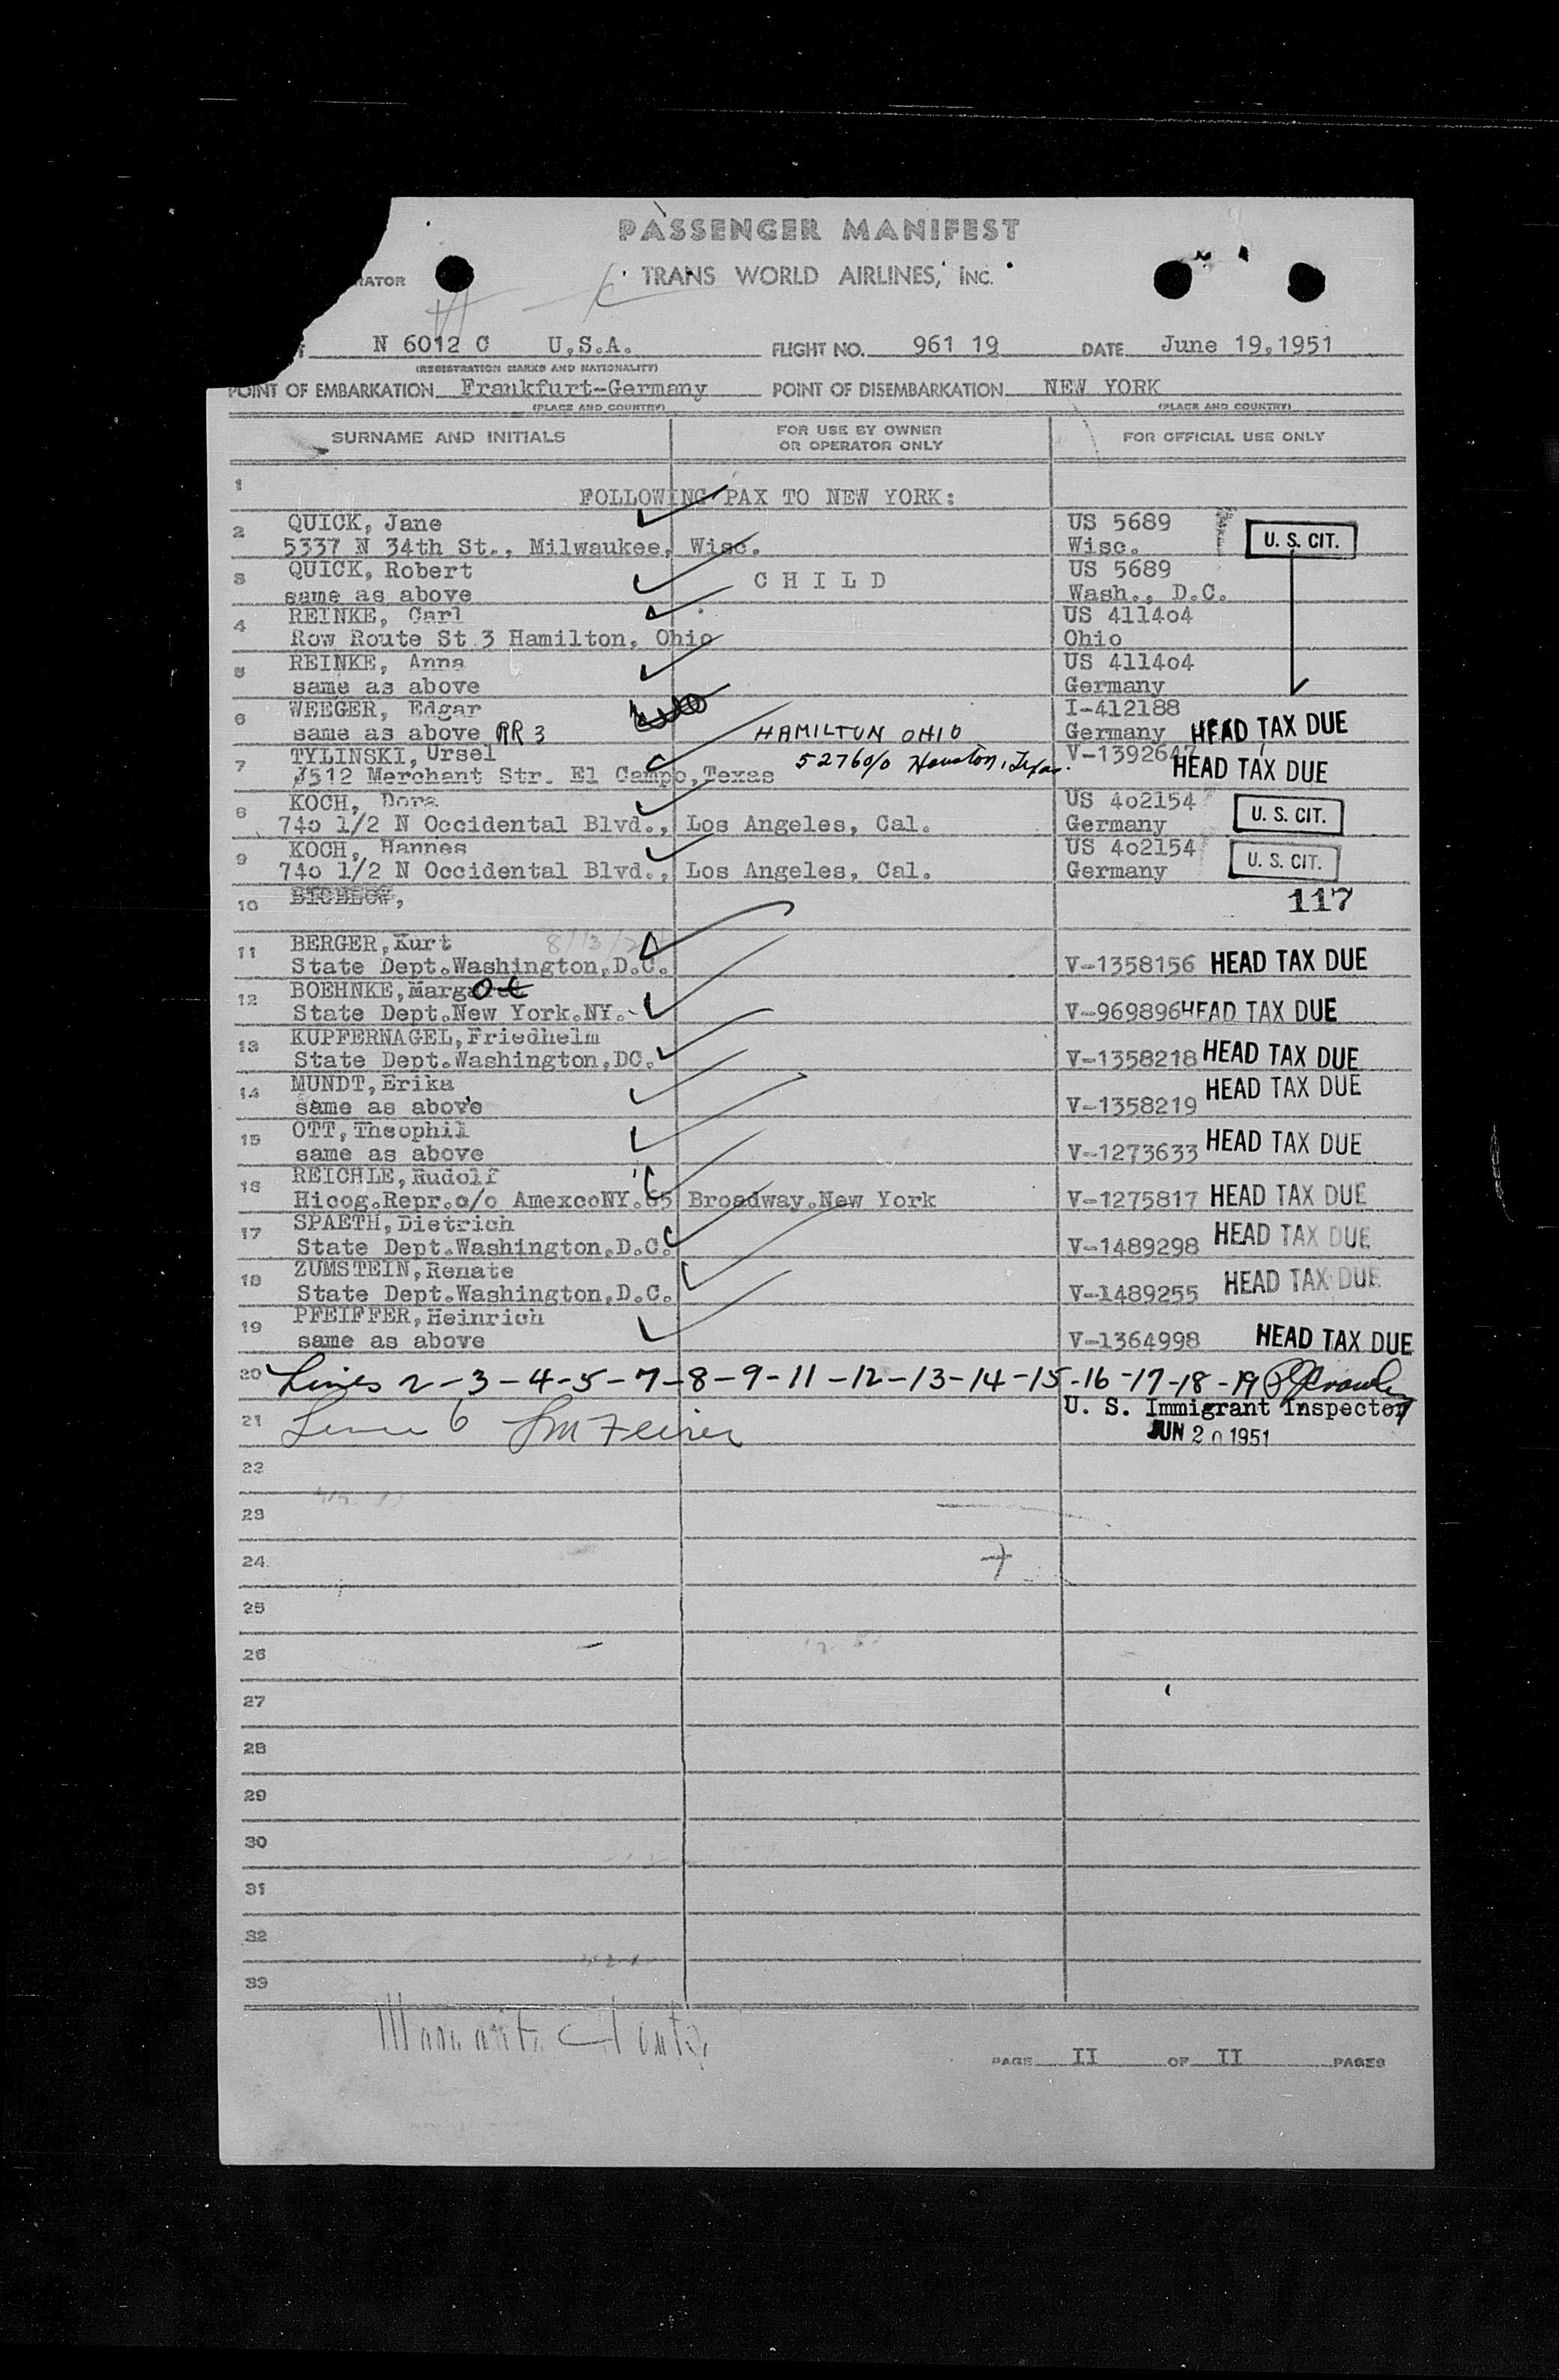 PASSENGER MANIFEST
TRANS WORLD AIRLINES, INC.
N 6012 C U.S.A. FLIGHT NO. 961 19 DATE June 19,1951
(REGISTRATION MARKS AND NATIONALITY)
POINT OF EMBARKATION Frankfurt-Germany POINT OF DISEMBARKATION NEW YORK
(PLACE AND COUNTRY) (PLACE AND COUNTRY)
SURNAME AND INITIALS FOR USE BY OWNER OR OPERATOR ONLY FOR OFFICIAL USE ONLY
1 FOLLOWING PAX TO NEW YORK:
2 QUICK, Jane US 5689
5337 N 34th St., Milwaukee, Wisc. Wisc. U. S. CIT.
3 QUICK, Robert C H I L D US 5689
same as above Wash., D.C.
4 REINKE, Carl US 4114o4
Row Route St 3 Hamilton, Ohio Ohio
5 REINKE, Anna US 4114o4
same as above Germany
6 WEEGER, Edgar I-412188
same as above RR 3 HAMILTON OHIO Germany HEAD TAX DUE
7 TYLINSKI, Ursel 5276 % Houston, Texas. V-1392647
1512 Merchant Str. El Campo, Texas HEAD TAX DUE
8 KOCH, Dora US 4o2154
74o 1/2 N Occidental Blvd., Los Angeles, Cal. Germany U. S. CIT.
9 KOCH, Hannes US 4o2154
74o 1/2 N Occidental Blvd., Los Angeles, Cal. Germany U. S. CIT.
10 117
11 BERGER, Kurt
State Dept.Washington,D.C. V-1358156 HEAD TAX DUE
12 BOEHNKE, Margot
State Dept.New York.NY. V-969896 HEAD TAX DUE
13 KUPFERNAGEL, Friedhelm
State Dept.Washington,DC. V-1358218 HEAD TAX DUE
14 MUNDT, Erika
same as above V-1358219 HEAD TAX DUE
15 OTT, Theophil
same as above V-1273633 HEAD TAX DUE
16 REICHLE, Rudolf
Hicog.Repr.o/o AmexcoNY.65 Broadway.New York V-1275817 HEAD TAX DUE
17 SPAETH, Dietrich
State Dept.Washington,D.C. V-1489298 HEAD TAX DUE
18 ZUMSTEIN, Renate
State Dept.Washington,D.C. V-1489255 HEAD TAX DUE
19 PFEIFFER, Heinrich
same as above V-1364998 HEAD TAX DUE
20 Lines 2-3-4-5-7-8-9-11-12-13-14-15-16-17-18-19
U. S. Immigrant Inspector
21 Line 6 JUN 20 1951
22
23
24
25
26
27
28
29
30
31
32
33
PAGE II OF II PAGES